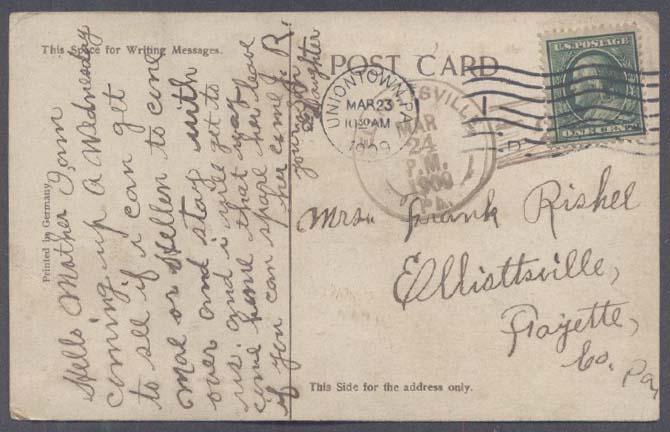 This Space for Writing Messages.
Hello Mother I am
coming up a Wednesday
to see if i can get
Mae or Hellen to come
over and stay with
us. and i will get to
come home that way
if you can spare her. love
her come J. R.
your
Daughter
Printed in Germany
POST CARD
UNIONTOWN, PA.
MAR 23
10 30 AM
1909
MAR
24
P.M.
1909
PA.
U.S. POSTAGE
ONE CENT
Mrs. Frank Rishel
Elliottsville,
Fayette,
Co. Pa,
This Side for the address only.